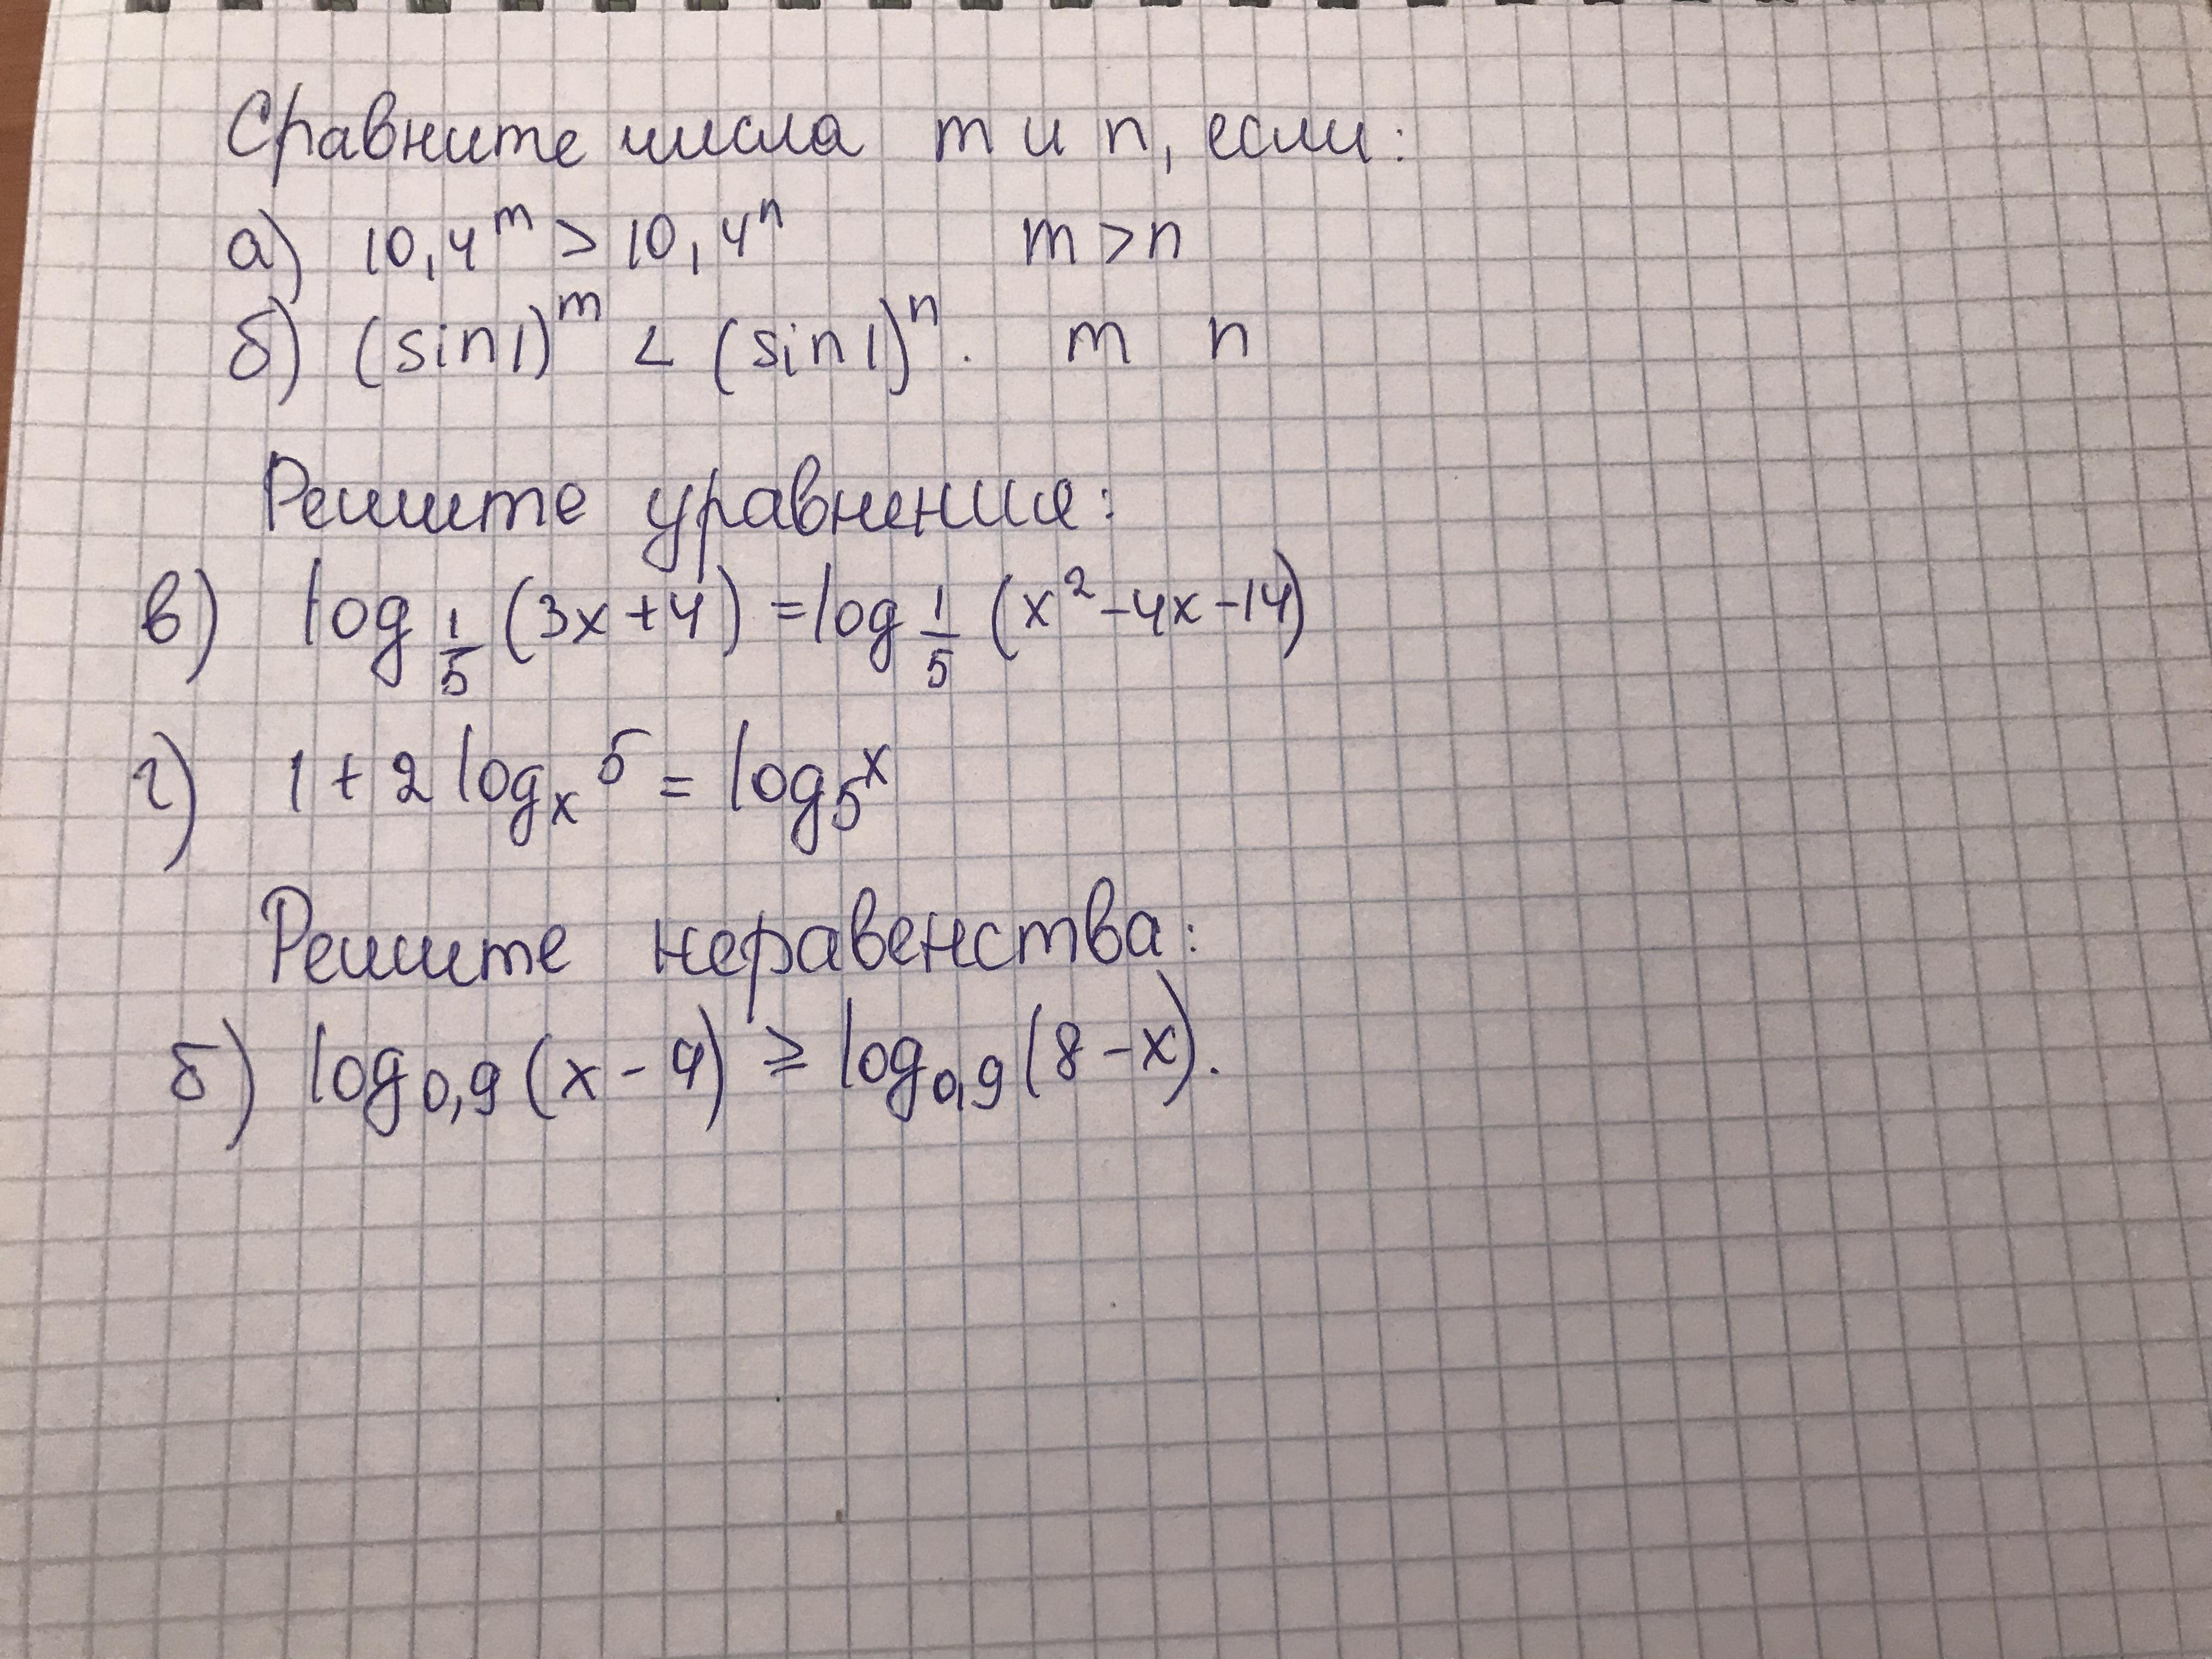 Сравните числа m и n, если:
а) 10,4^m > 10,4^n m > n
б) (sin1)^m < (sin1)^n. m n
Решите уравнения:
в) log_{1/5} (3x+4) = log_{1/5} (x^2-4x-14)
г) 1 + 2 log_x 5 = log_5 x
Решите неравенства:
б) log_{0,9} (x-4) ≥ log_{0,9} (8-x).